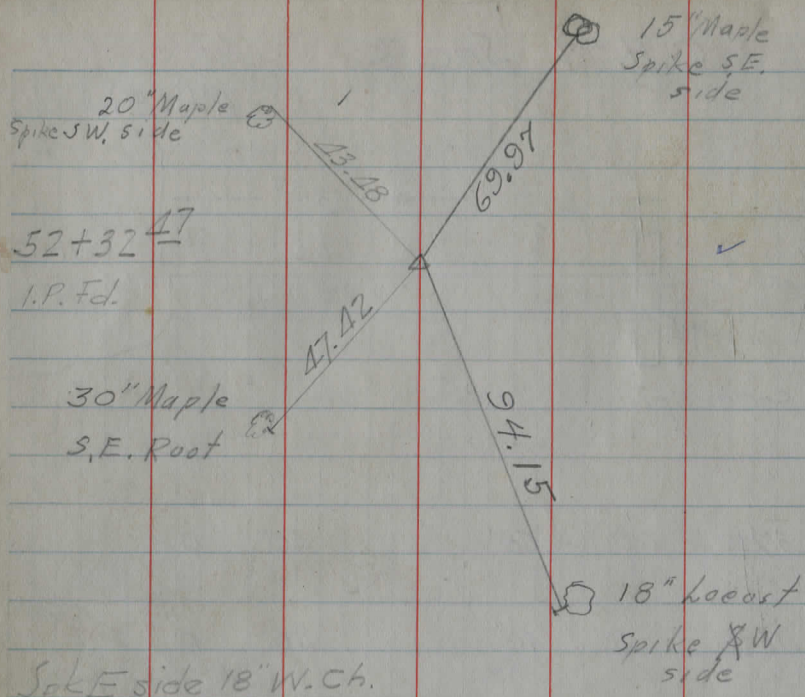 15" Maple
Spike S.E.
side
20" Maple
Spike SW. side
43.48
69.97
52+32 47
I.P. Fd.
47.42
30" Maple
S.E. Root
94.15
18" Locust
Spike W
side
Spk E side 18" W. Ch.